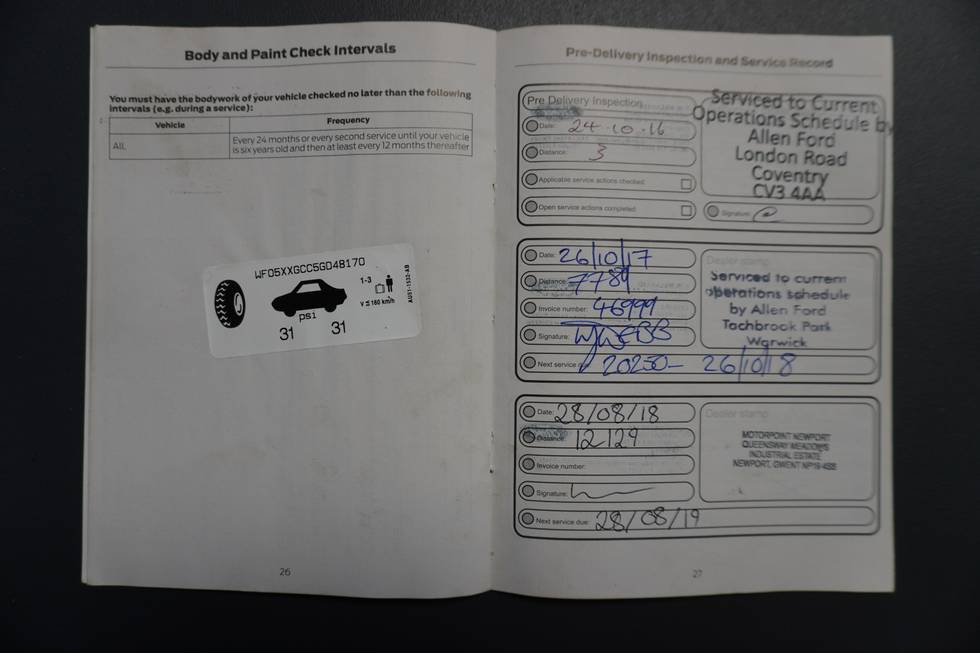 Body and Paint Check Intervals
You must have the bodywork of your vehicle checked no later than the following
intervals (e.g. during a service):
Vehicle Frequency
All. Every 24 months or every second service until your vehicle
is six years old and then at least every 12 months thereafter
WF05XXGCC5GD48170
1-3
V ≤ 160 km/h
AU51-1532-AB
psi
31 31
26
Pre-Delivery Inspection and Service Record
Pre Delivery Inspection
Date: 24.10.16
Distance: 3
Applicable service actions checked:
Open service actions completed:
Serviced to Current
Operations Schedule by
Allen Ford
London Road
Coventry
CV3 4AA
Signature:
Date: 26/10/17
Distance: 7789
Invoice number: 46999
Signature: WWEBB
Next service due: 20250- 26/10/18
Dealer stamp
Serviced to current
operations schedule
by Allen Ford
Tachbrook Park
Warwick
Date: 28/08/18
Distance: 12129
Invoice number:
Signature:
Next service due: 28/08/19
Dealer stamp
MOTORPOINT NEWPORT
QUEENSWAY MEADOWS
INDUSTRIAL ESTATE
NEWPORT, GWENT NP19 4SS
27